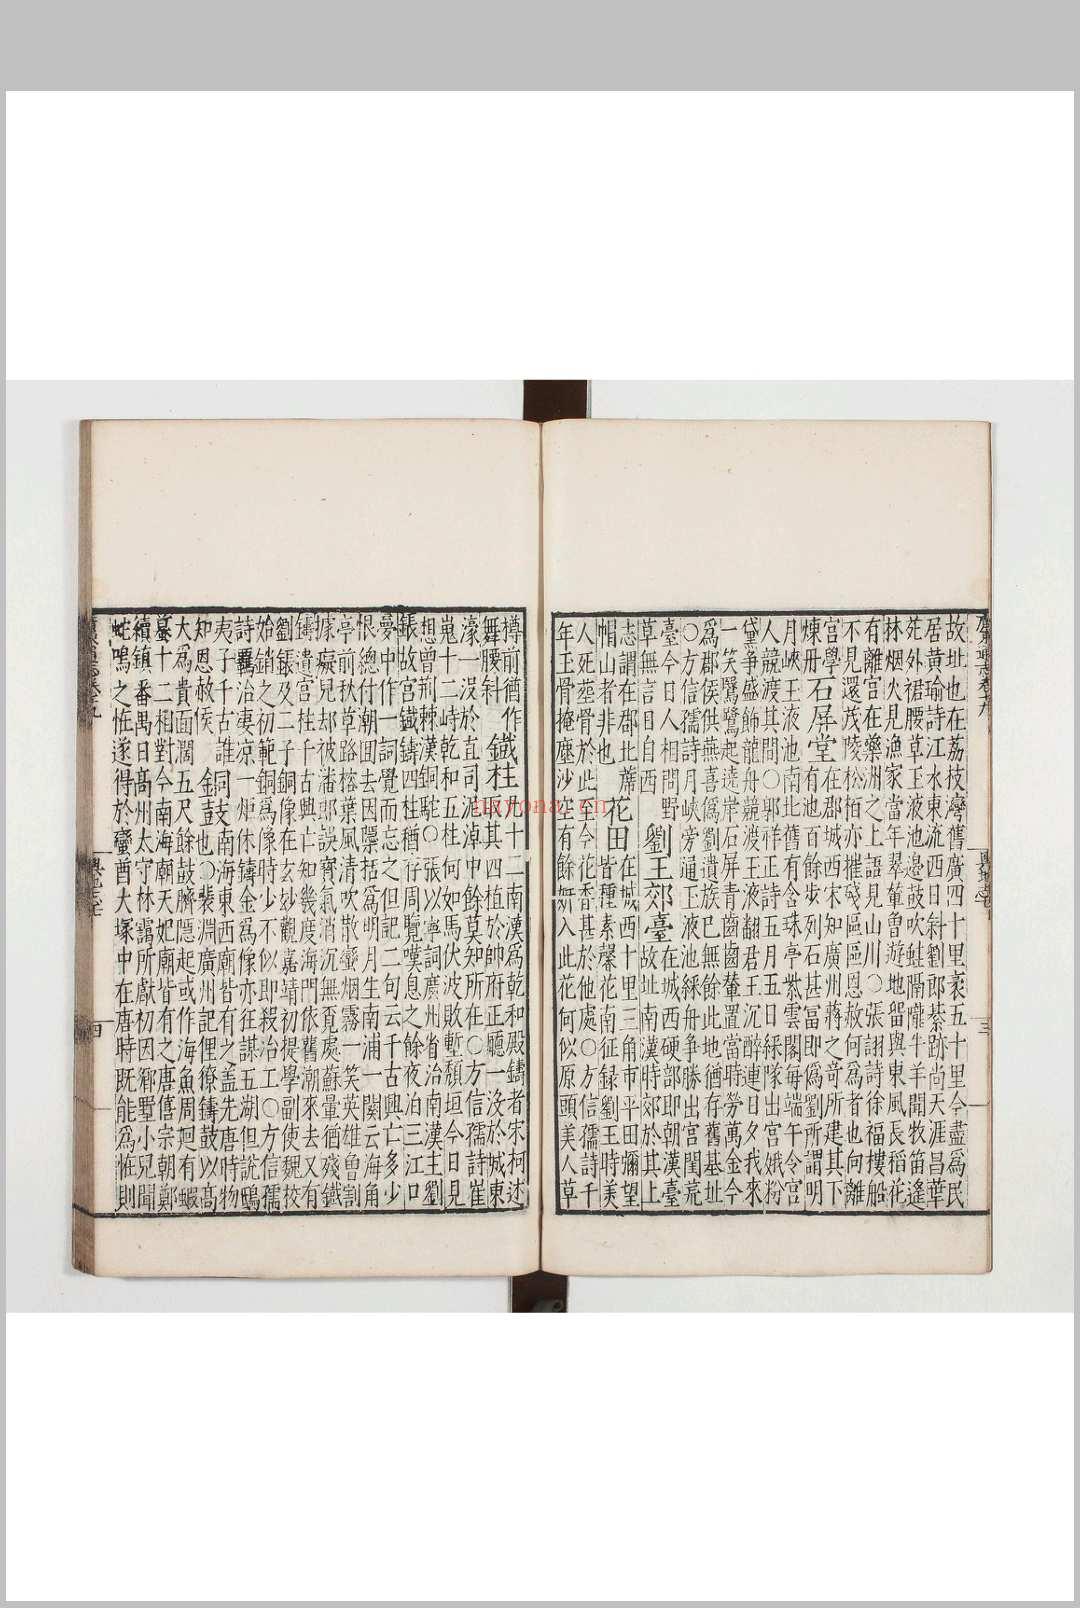 故址也在荔枝灣舊廣四十里袤五十里今盡為民
居黃瑜詩江水東流西日斜劉郎紫跡尚天涯昌華
苑外裙腰草玉液池邊鼓吹蛙隔隴牛羊聞牧笛遙
林烟火見漁家當年翠輦曾遊地留與東風長稻花
有離宮在藥洲之上語見山川〇張詡詩徐福樓船
不見還茂陵松栢亦摧殘區區恩赦何為者也向離
宮學煉丹
石屏堂在郡城西宋知廣州蔣之奇所建其下
有池百餘步列石甚富即偽劉所謂明
月峽玉液池南北舊有含珠亭紫雲閣每端午令宮
人競渡其間〇郭祥正詩五月五日綵隊出宮娥粉
黛爭盛飾龍舟競渡玉液翻君王沉醉連日夕我來
一笑鷖鷺起遶岸石屏青齒齒輦置當時勞萬金今
為郡侯供燕喜偽劉遺族已無餘此地猶存舊基址
〇方信孺詩月峽旁通玉液池綵舟爭勝出宮闈荒
臺今日人相問野草無言日自西
劉王郊臺在城西硬部即朝漢臺
故址南漢時郊於其上
志謂在郡北蓆帽山者非也
花田在城西十里三角市平田彌望
皆種素馨花南征録劉王時美
人死塟骨於此至今花香甚於他處〇方信孺詩千
年玉骨掩塵沙空有餘妍入此花何似原頭美人草
樽前猶作舞腰斜
鐵柱凡十二南漢為乾和殿鑄者宋柯述
取其四植於帥府正廳一沒於城東
濠一沒於直司泥淖中餘莫知所在〇方信孺詩崔
嵬十二峙乾和五柱何如馬伏波敗塹頹垣今日見
想曾荊棘漢銅駝〇張以寧詞廣州省治南漢主劉
鋹故宮鐵鑄四柱猶存周覽嘆息之餘夜泊三江口
夢中作一詞覺而忘之但記二句云千古興亡多少
恨總付潮囬去因檃括為明月生南浦一闋云海角
亭前秋草路榕葉風清吹散蠻烟霧一笑英雄曾割
據癡兒却被潘郎誤寶氣消沉無覓處蘇暈猶殘鐵
鑄遺宮柱千古興亡知幾度海門依舊潮來去又有
劉鋹及二子銅像在玄妙觀嘉靖初提學副使魏校
始銷之初範銅為像時少不似即殺治工〇方信孺
詩覊治凄凉一炬休鑄金為像亦狂謀五湖但說鴟
夷子千古誰知恩赦侯
銅支南海東西廟皆有之盖先唐時物
金鼓也〇裴淵廣州記俚獠鑄鼓以高
大為貴面濶五尺餘鼓臍隱起或作海魚周廻有蝦
蟇十二相對今南海廟天妃廟皆有之唐僖宗朝鄭
續鎮番禺日高州太守林靄所獻初因鄉墅小兒聞
蛙鳴之恠遂得於蠻酋大塚中在唐時既能為恠則
三
四
nxyona.cn